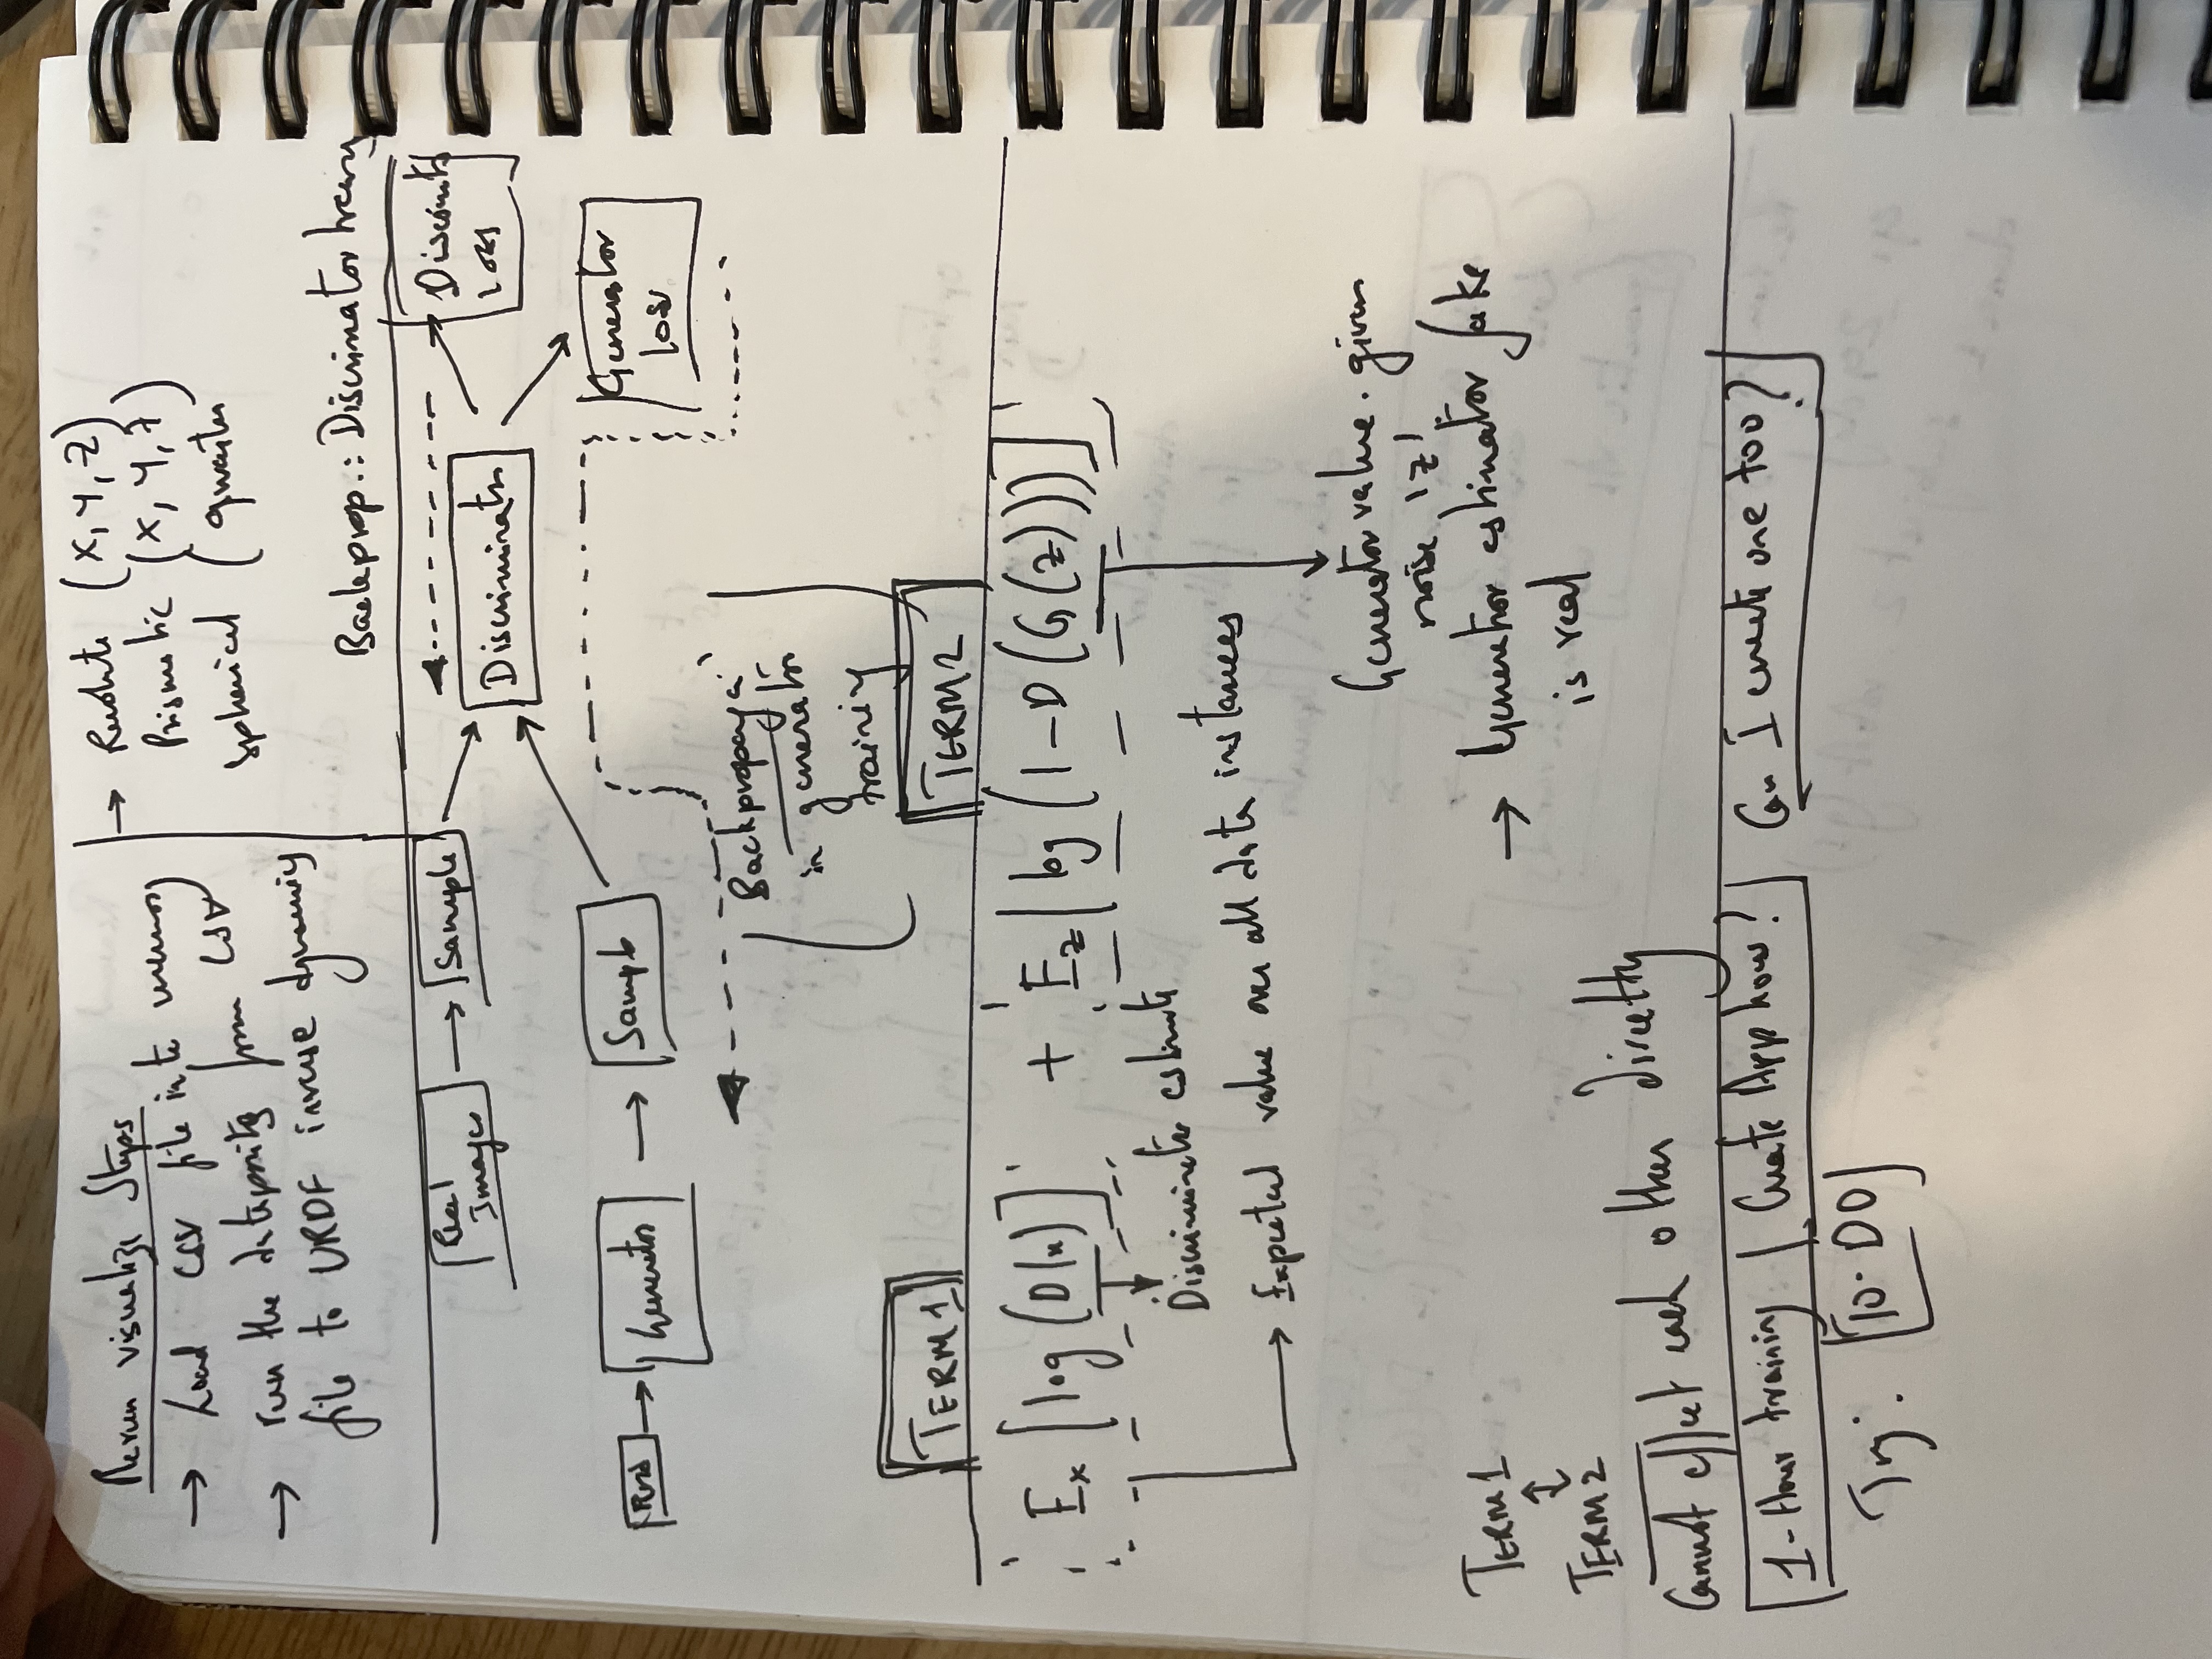 Rerun visualize Steps
→ Load CSV file into memory
→ run the datapoints from CSV
file to URDF inverse dynamics
→ Revolute (X, Y, Z)
Prismatic (X, Y, Z)
Spherical (
Backprop.: Discriminator
Real
Images
→ Sample
Discriminator
Loss
Discriminator
Rnd → Generator → Sample
Generator
loss
in generator
training
TERM 1
TERM 2
Ex [log (D(x)] + Ez [log (1-D(G(z)))]
Discriminator estimate
→ Expected value over all data instances
Generator value. given
noise 'z'.
→ Generator estimator fake
is real
TERM 1
↕
TERM 2
Cannot effect each other directly
1-Hour training | Create App how? Can I create one too?
Try: [TO-DO]